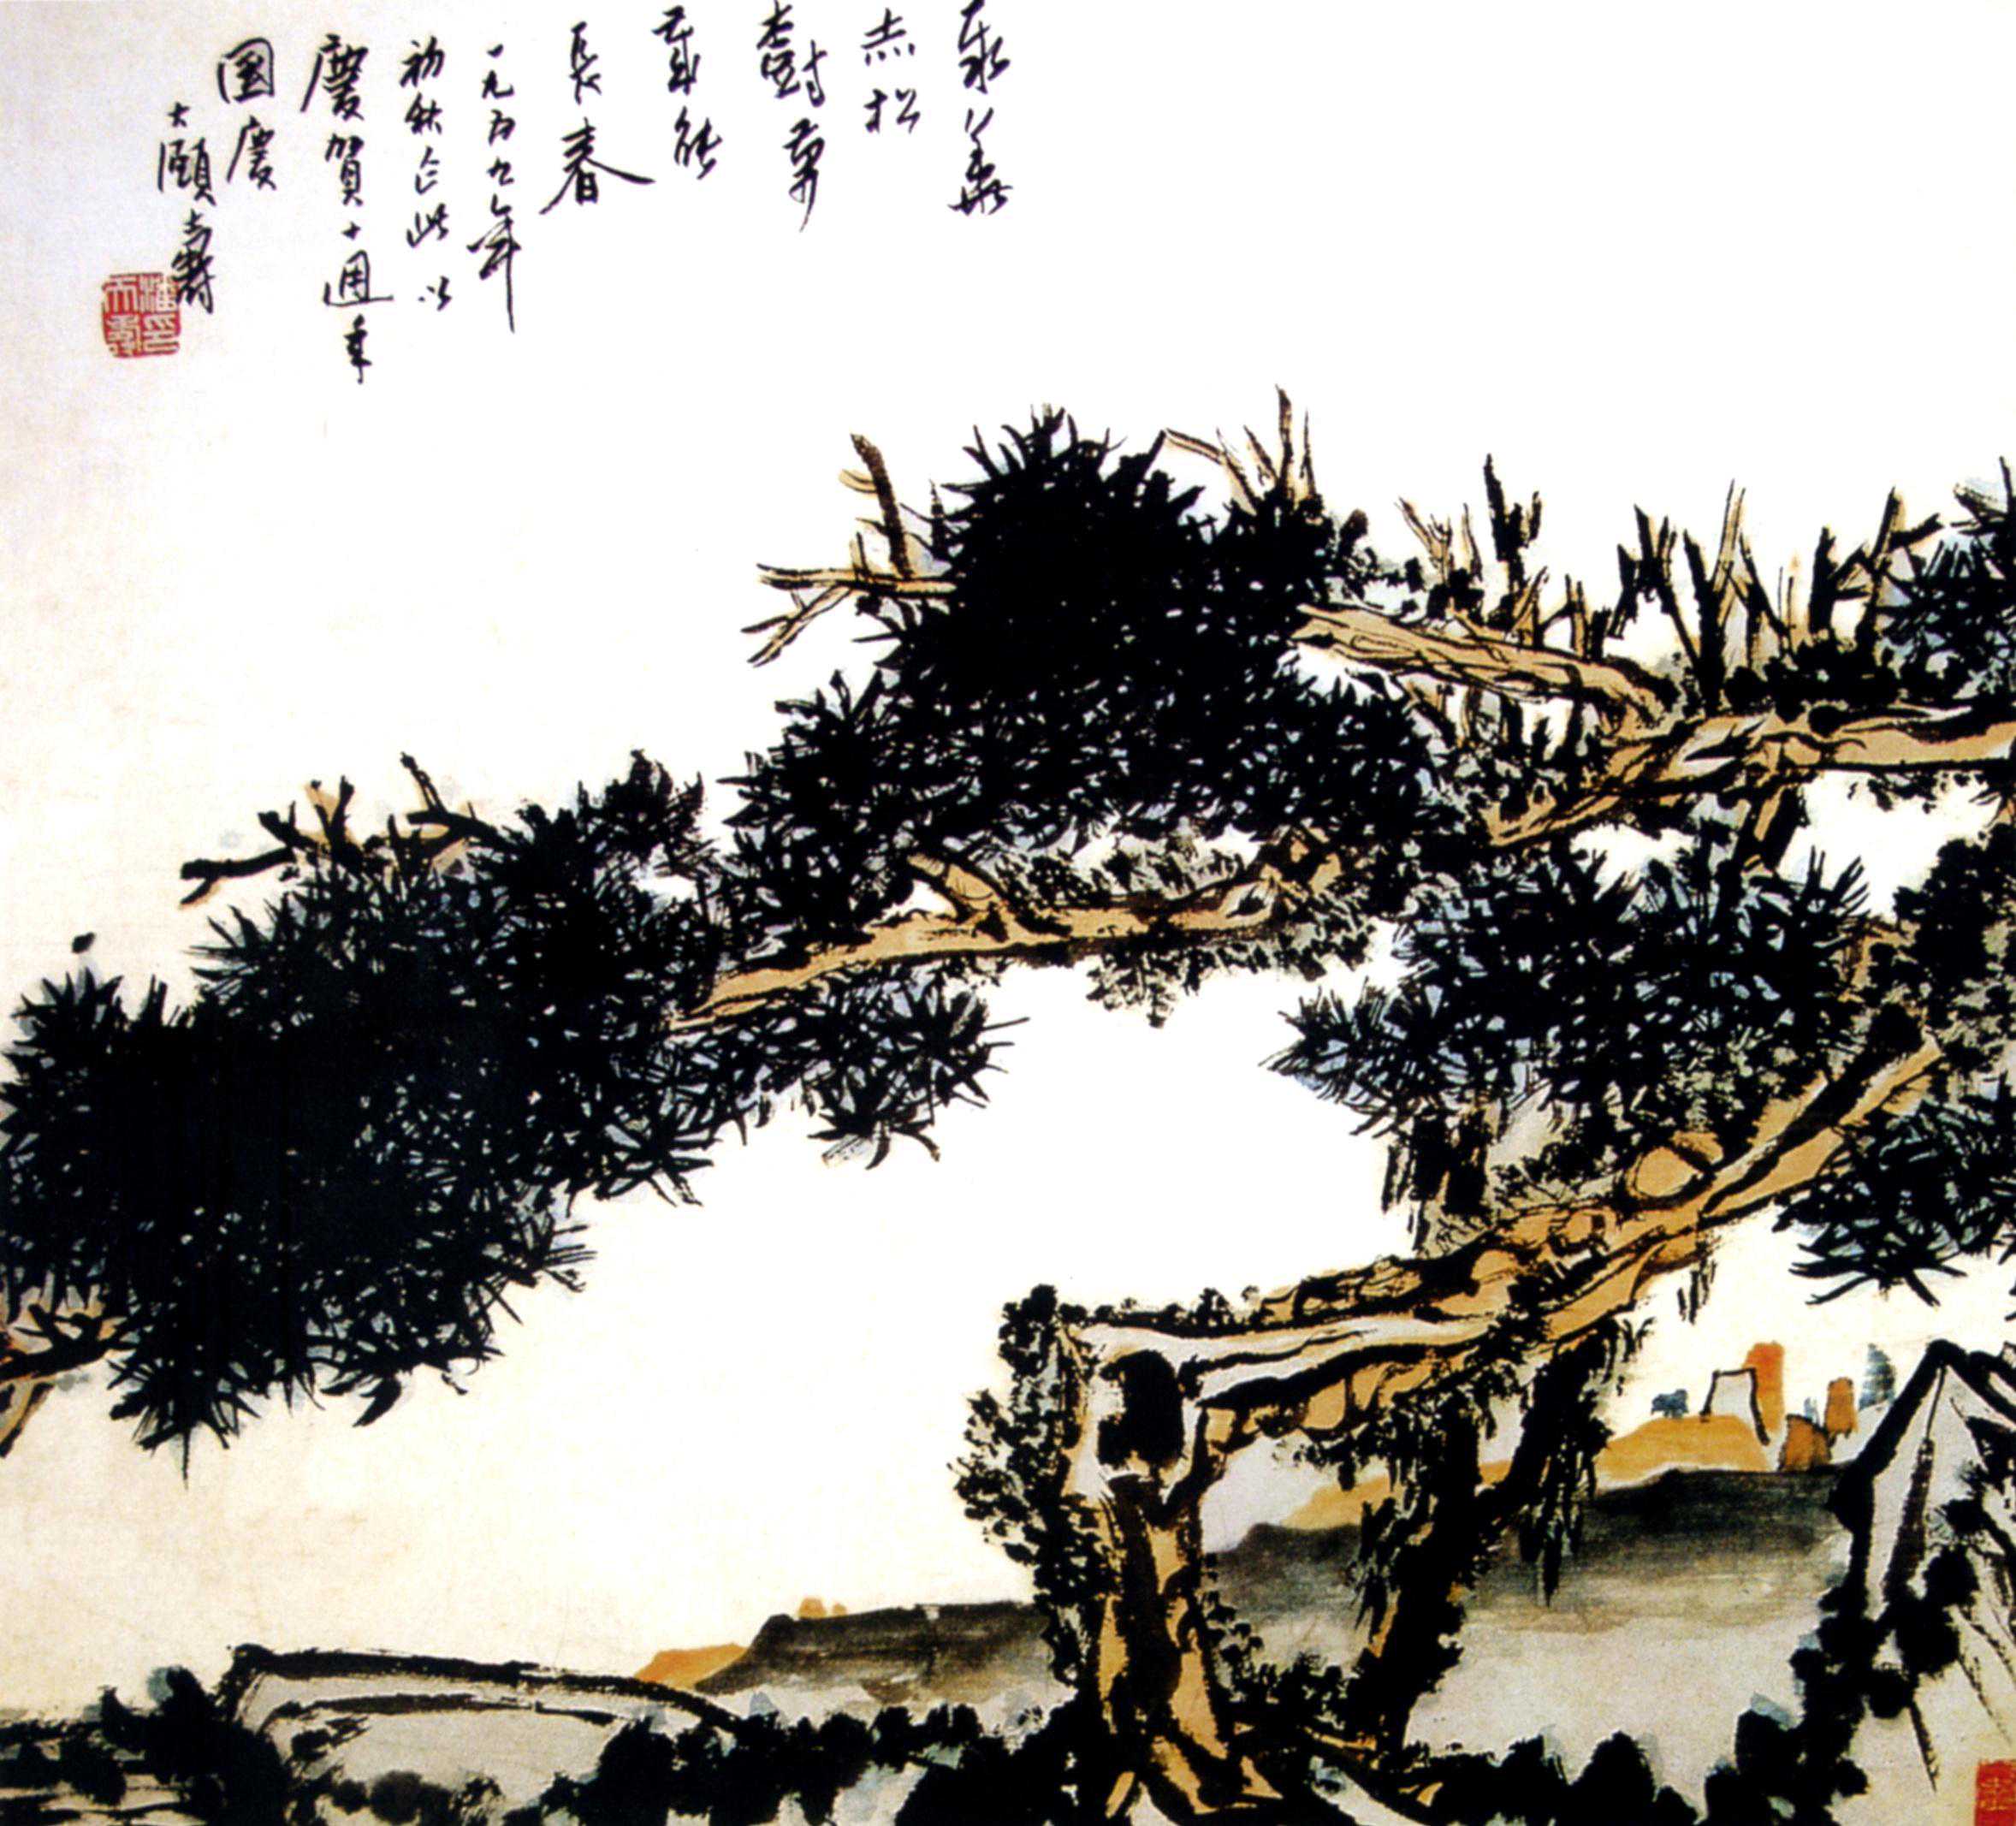 華
赤松
樹萬
能
長春
一九五九年
初秋作此以
慶賀十週年
國慶
大頤壽
潘天壽印